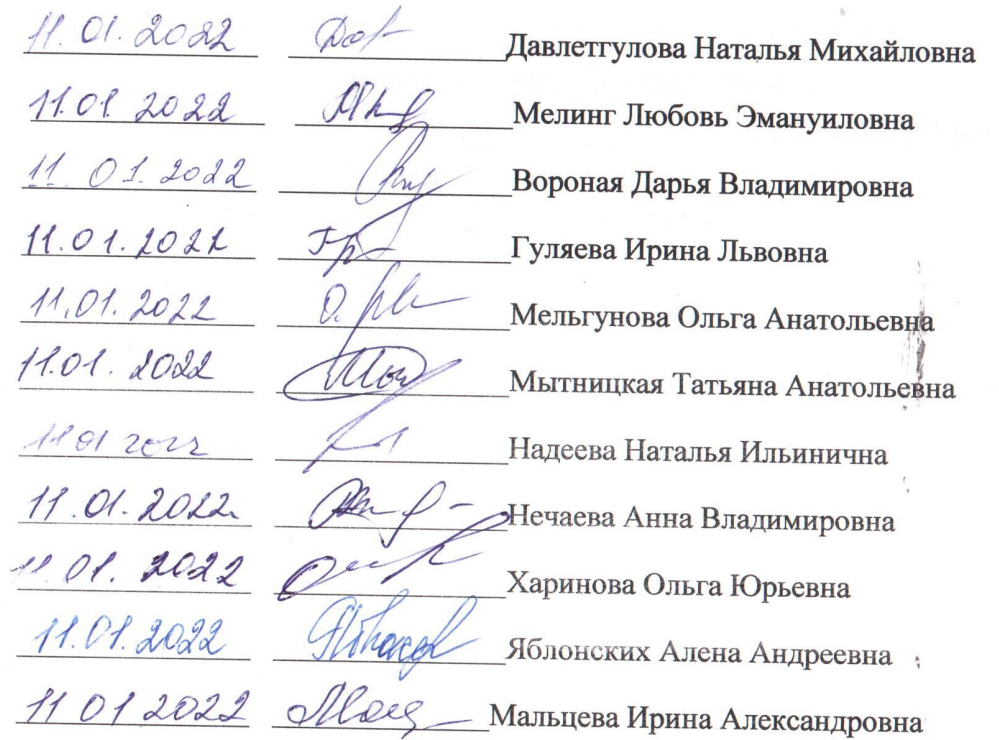 11.01.2022 Давлетгулова Наталья Михайловна
11.01.2022 Мелинг Любовь Эмануиловна
11.01.2022 Вороная Дарья Владимировна
11.01.2022 Гуляева Ирина Львовна
11.01.2022 Мельгунова Ольга Анатольевна
11.01.2022 Мытницкая Татьяна Анатольевна
11 01 2022 Надеева Наталья Ильинична
11.01.2022 Нечаева Анна Владимировна
11.01.2022 Харинова Ольга Юрьевна
11.01.2022 Яблонских Алена Андреевна
11 01 2022 Мальцева Ирина Александровна